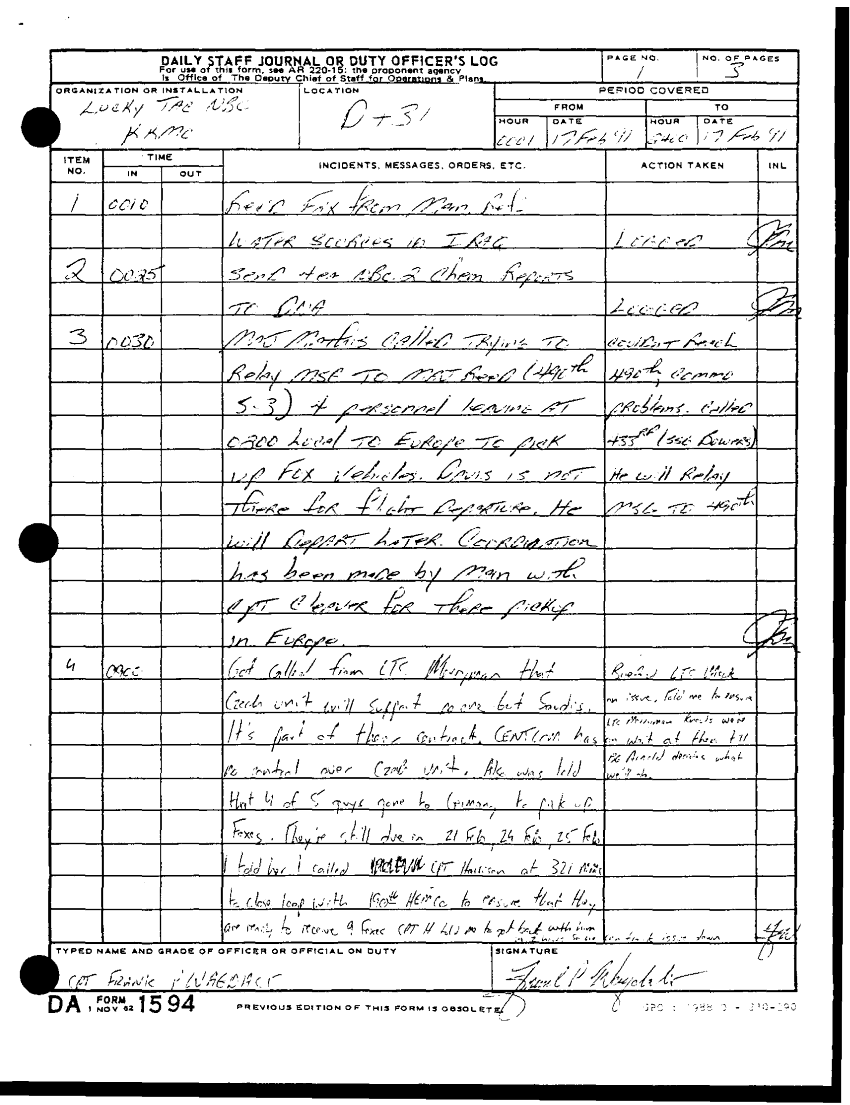 DAILY STAFF JOURNAL OR DUTY OFFICER'S LOG
For use of this form, see AR 220-15; the proponent agency
is Office of The Deputy Chief of Staff for Operations & Plans.
PAGE NO.
1
NO. OF PAGES
3
ORGANIZATION OR INSTALLATION
Lucky TAC NBC
KKMC
LOCATION
D+31
PERIOD COVERED
FROM
TO
HOUR
DATE
HOUR
DATE
0001
17 Feb 91
2400
17 Feb 91
ITEM NO.
TIME
IN
OUT
INCIDENTS, MESSAGES, ORDERS, ETC.
ACTION TAKEN
INL
1 0010 Rec'd Fax from Main Ref:
WATER SOURCES IN IRAQ LOGGED
2 0025 Send 4 ea NBC-2 Chem Reports
TO LOGGED
3 0030 MAJ called Trying TO couldn't Reach
Relay MSG TO MAJ Reed (490th 490th, commo
S-3) 4 personnel leaving AT problems. Called
0200 Local TO Europe TO pick 433rd (SSG Bowers)
up FOX Vehicles. Davis is not He will Relay
There for flight Departure. He MSG TO 490th
will Depart Later. Coordination
has been made by Main with
CPT Cleaver for There pickup
in Europe.
4 0900 Got called from LTC Merryman that Briefed LTC
Czech unit will support no one but Saudis. on issue, told me to ensure
It's part of their contract. CENTCOM has LTC Merryman knows we're
no control over Czech unit. Also was told on wait at them till
that 4 of 5 guys gone to Germany to pick up BG Arnold decides what
Foxes. They're still due in 21 Feb, 24 Feb, 25 Feb we'll do
I told her I called CPT Harrison at 321
to close loop with 190th to ensure that they
are ready to receive 9 Foxes CPT H told me to get back with him
TYPED NAME AND GRADE OF OFFICER OR OFFICIAL ON DUTY
CPT FRANK P
SIGNATURE
DA FORM 1594
1 NOV 62
PREVIOUS EDITION OF THIS FORM IS OBSOLETE